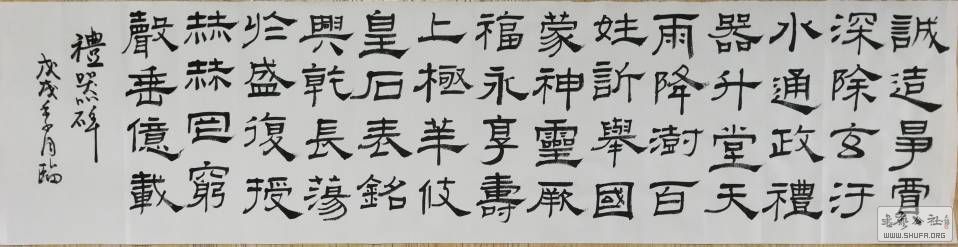 誠造爭賈
深除玄汙
水通政禮
器升堂天
雨降澍百
姓訢舉國
蒙神靈厥
福永享壽
上極華伎
皇石表銘
興乾長蕩
於盛復授
赫赫罔窮
聲垂億載
禮器碑
戊戌月臨
WWW.SHUFA.ORG